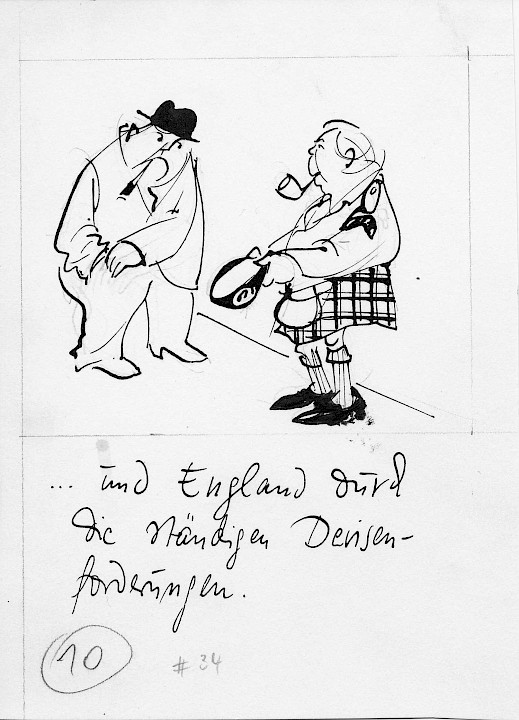 ... und England durch
die ständigen Devisen-
forderungen.
10
# 34